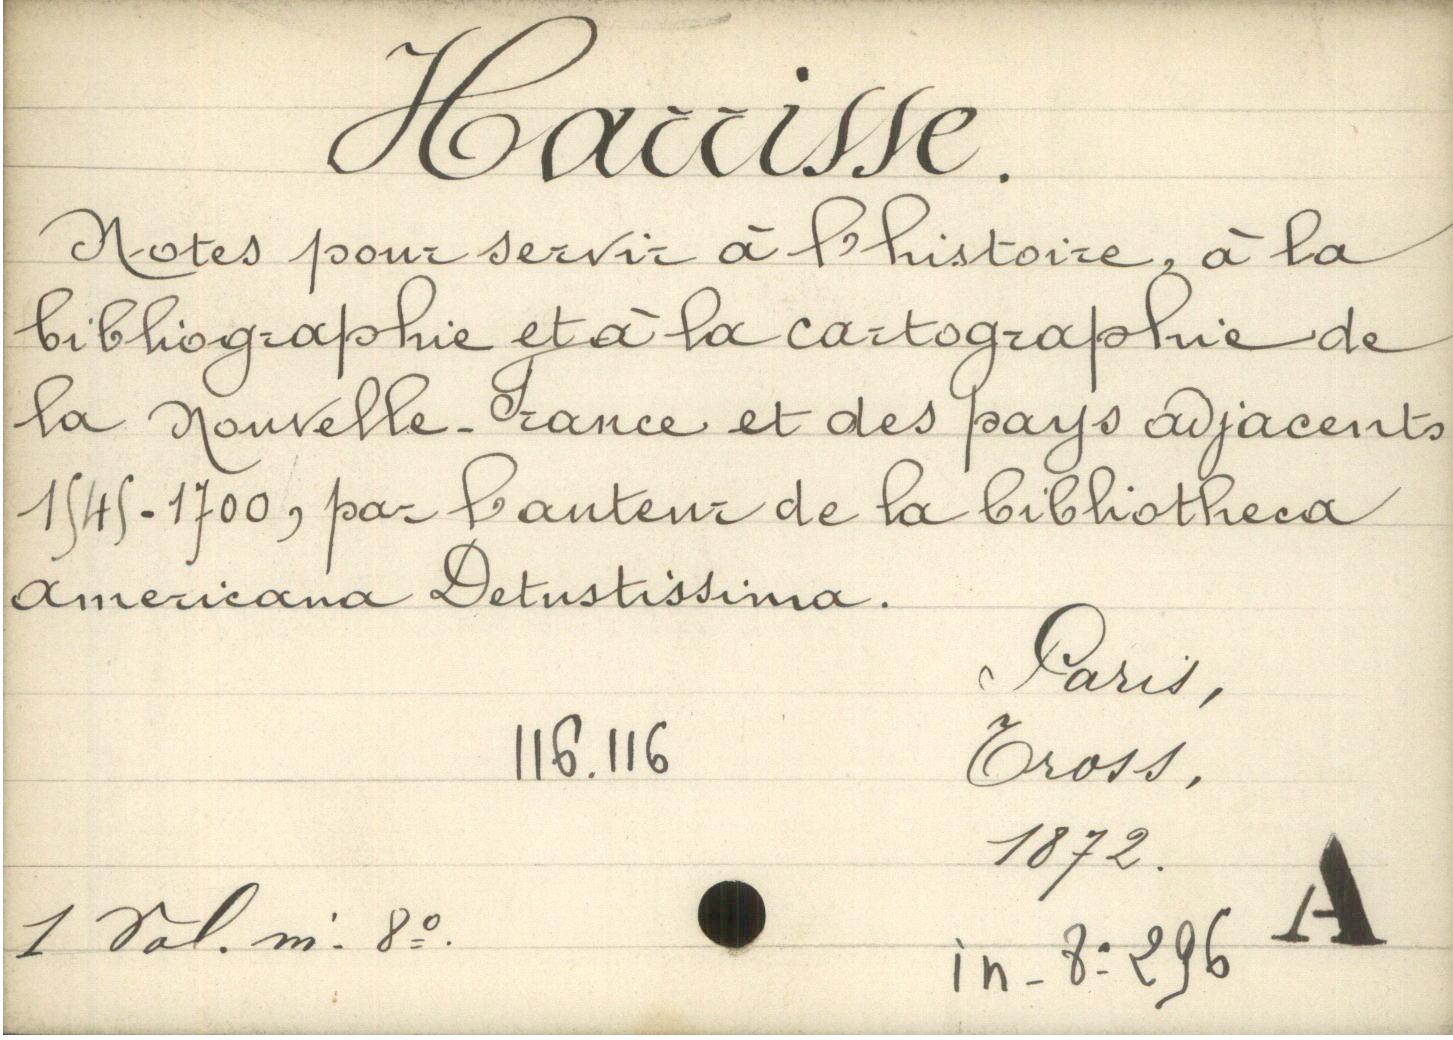 Harrisse.
Notes pour servir à l'histoire, à la
bibliographie et à la cartographie de
la Nouvelle-France et des pays adjacents
1545-1700, par l'auteur de la bibliotheca
americana Vetustissima.
Paris,
116.116
Tross,
1872.
A
1 Vol. in-8º.
in-8º 296